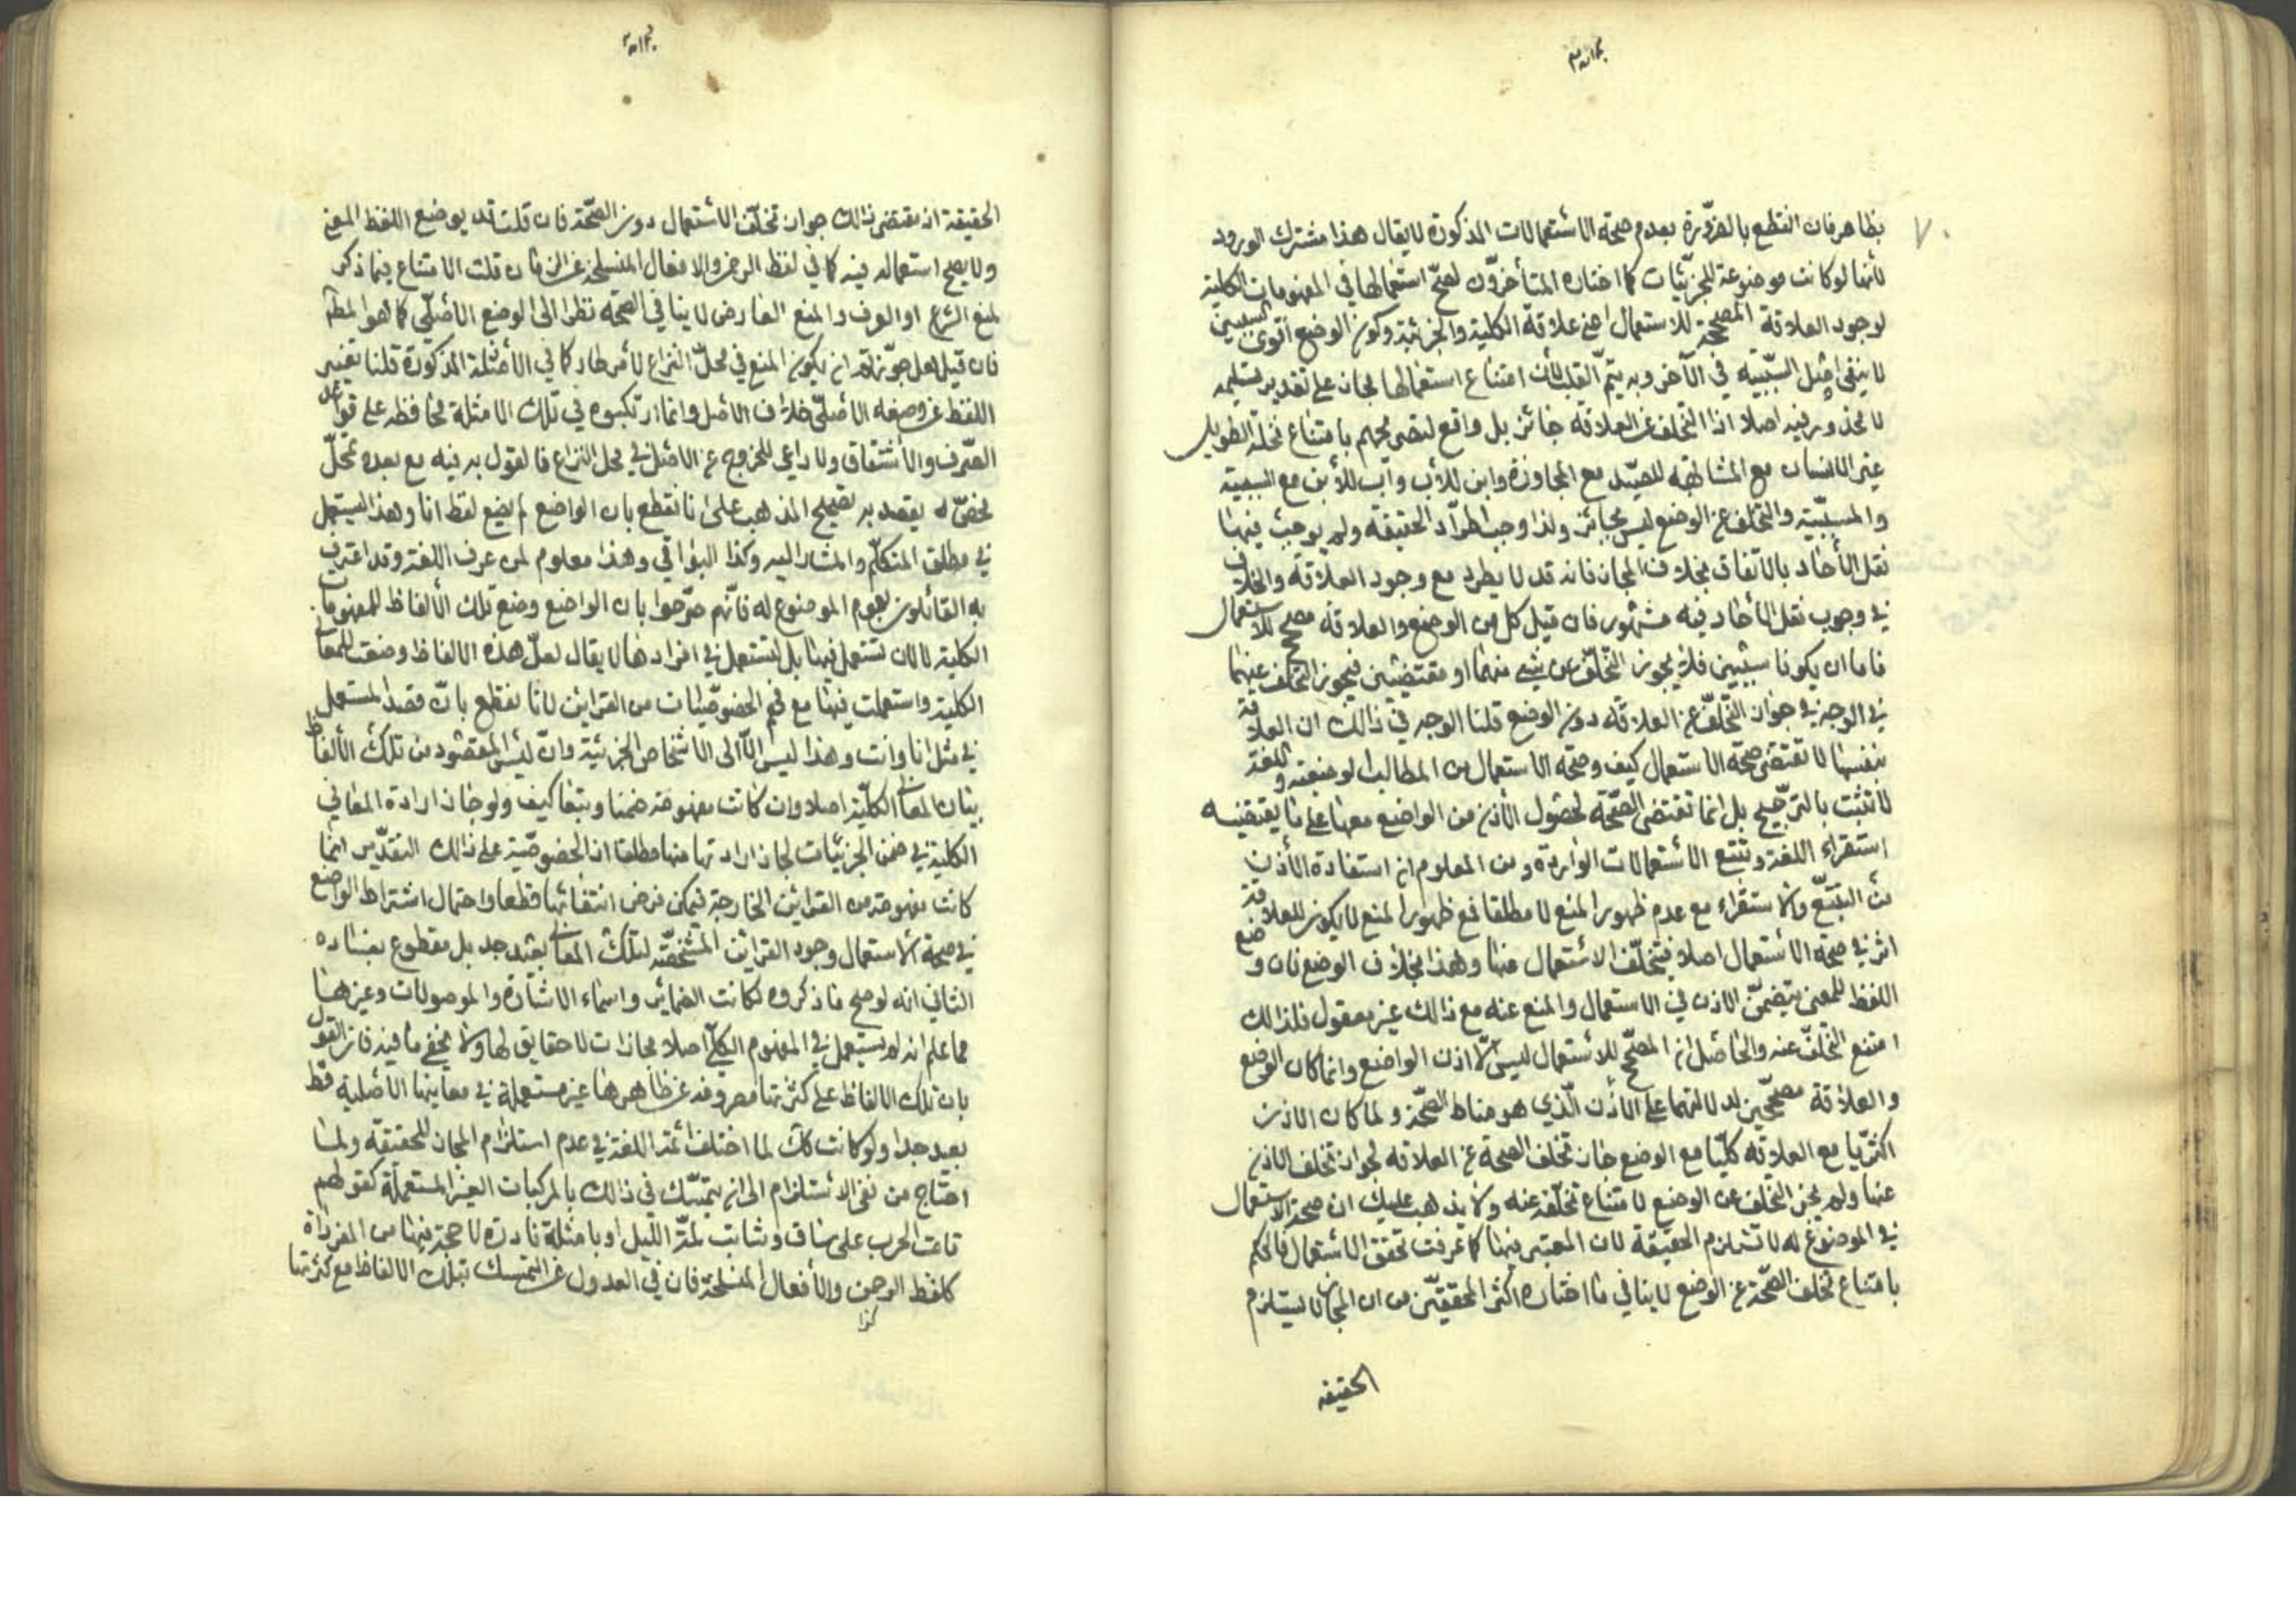 ٧٠
بظاهر فان القطع بالضرورة بعدم صحة الاستعمالات المذكورة لا يقال هذا مشترك الورود
لأنها لو كانت موضوعة للجزئيات كما اختاره المتأخرون لصح استعمالها في المفهومات الكلية
لوجود العلاقة المصححة للاستعمال اعني علاقة الكلية والجزئية وكون الوضع اقوى السببين
لا ينفي اصل السببية في الآخر وبه يتم القلب لأن امتناع استعمالها مجازا على تقدير تسليمه
لا محذور فيه اصلا اذ التخلف عن العلاقة جائز بل واقع لتصريحهم بامتناع نخلة لطويل
غير الانسان مع المشابهة للصيد مع المجاورة وابن للأب واب للأبن مع السببية
والمسببية والتخلف عن الوضع ليس بجائز ولذا وجب اطراد الحقيقة ولم يوجب فيها
نقل الأحاد بالاتفاق بخلاف المجاز فانه قد لا يطرد مع وجود العلاقة والخلاف
في وجوب نقل الأحاد فيه مشهور فان قيل كل من الوضع والعلاقة مصحح للاستعمال
فاما ان يكونا سببين فلا يجوز التخلف عن شيء منهما او مقتضيين فيجوز التخلف عنهما
في الوجه في جواز التخلف عن العلاقة دون الوضع قلنا الوجه في ذالك ان العلاقة
بنفسها لا تقتضي صحة الاستعمال كيف وصحة الاستعمال من المطالب لوضعية واللغة
لا تثبت بالترجيح بل انما تقتضي الصحة لحصول الأذن من الواضع معها على ما يقتضيه
استقراء اللغة وتتبع الاستعمالات الواردة ومن المعلوم ان استفادة الأذن
من التتبع والاستقراء مع عدم ظهور المنع لا مطلقا فمع ظهور المنع لا يكون للعلاقة
اثر في صحة الاستعمال اصلا فيتخلف الاستعمال عنها وهذا بخلاف الوضع فان وضع
اللفظ للمعنى يتضمن الاذن في الاستعمال والمنع عنه مع ذالك غير معقول فلذالك
امتنع التخلف عنه والحاصل ان المصحح للاستعمال ليس الا اذن الواضع وانما كان الوضع
والعلاقة مصححين لدلالتهما على الأذن الذي هو مناط الصحة ولما كان الاذن
اكثريا مع العلاقة كليا مع الوضع جاز تخلف الصحة عن العلاقة لجواز تخلف الاذن
عنها ولم يجز التخلف عن الوضع لامتناع تخلفه عنه ولا يذهب عليك ان صحة الاستعمال
في الموضوع له لا تستلزم الحقيقة لان المعتبر فيها كما عرفت تحقق الاستعمال فالحكم
بامتناع تخلف الصحة عن الوضع لا ينافي ما اختاره اكثر المحققين من ان المجاز لا يستلزم
الحقيقه
الحقيقة اذ مقتضى ذالك جواز تخلف الاستعمال دون الصحة فان قلت قد يوضع اللفظ لمعنى
ولا يصح استعماله فيه كما في لفظ الرحمن والافعال المنسلخة عن الزمان قلت الامتناع فيما ذكر
لمنع الشرع او العرف والمنع العارض لا ينافي الصحة نظرا الى الوضع الأصلي كما هو المط
فان قيل لعل جوزتم ان يكون المنع في محل النزاع لأمر طار كما في الأمثلة المذكورة قلنا تغيير
اللفظ عن وضعه الأصلي خلاف الاصل وانما ارتكبوه في تلك الامثلة محافظة على قواعد
الصرف والأشتقاق ولا داعي للخروج عن الاصل في محل النزاع فالقول به فيه مع بعده تمحل
محض لم يقصد به تصحيح المذهب على انا نقطع بان الواضع لم يضع لفظ انا وهذا ليستعمل
في مطلق المتكلم والمشار اليه وكذا البواقي وهذا معلوم لمن عرف اللغة وقد اعترف
به القائلون بعموم الموضوع له فانهم صرحوا بان الواضع وضع تلك الألفاظ للمفهومات
الكلية لا لان تستعمل فيها بل لتستعمل في افرادها لا يقال لعل هذه الالفاظ وضعت للمعاني
الكلية واستعملت فيها مع فهم الخصوصيات من القراين لانا نقطع بان قصد المستعمل
في مثل انا وانت وهذا ليس الا الى الاشخاص الجزئية وان ليس المقصود من تلك الألفاظ
بيان المعاني الكلية اصلا وان كانت مفهومة ضمنا وتبعا كيف ولو جاز ارادة المعاني
الكلية في ضمن الجزئيات لجاز ارادتها منها مطلقا اذ الخصوصية على ذالك التقدير انما
كانت مفهومة من القراين الخارجة فيمكن فرض انتفائها قطعا واحتمال اشتراط الواضع
في صحة الأستعمال وجود القراين المشخصة لتلك المعاني بعيد جدا بل مقطوع بفساده
الثاني انه لو صح ما ذكروه لكانت الضمائر واسماء الاشارة والموصولات وغيرها
مما علم انه لم يستعمل في المفهوم الكلي اصلا مجازات لا حقايق لها ولا يخفى ما فيه فان القول
بان تلك الالفاظ على كثرتها مصروفة عن ظاهرها غير مستعملة في معانيها الأصلية قط
بعيد جدا ولو كانت كك لما اختلف ائمة اللغة في عدم استلزام المجاز للحقيقة ولما
احتاج من نفى الاستلزام الى ان يتمسك في ذالك بالمركبات الغير المستعملة كقولهم
قامت الحرب على ساق وشابت لمة الليل او بامثلة نادرة لا حجة فيها من المفرداة
كلفظ الرحمن والأفعال المنسلخة فان في العدول عن التمسك بتلك الالفاظ مع كثرتها